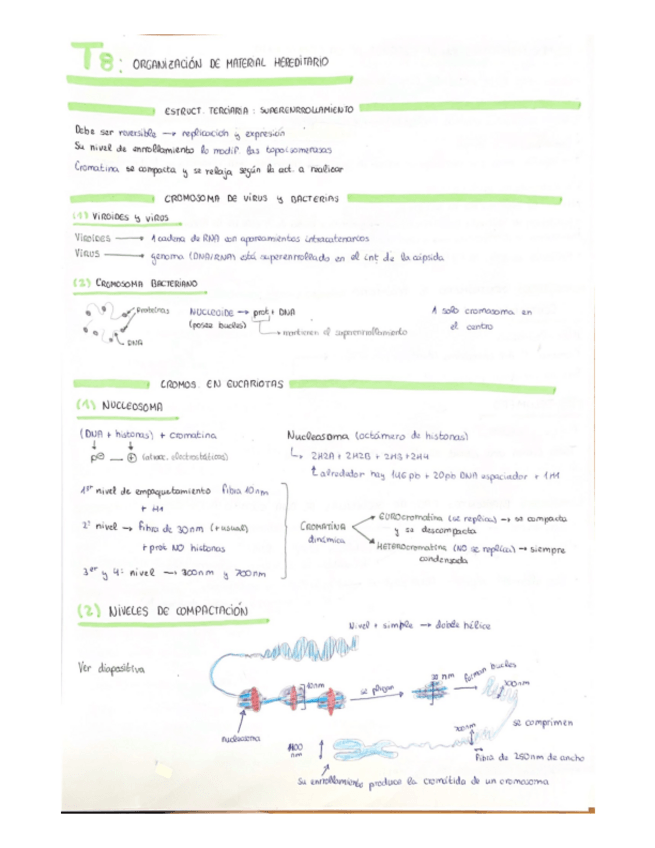 T8: ORGANIZACIÓN DE MATERIAL HEREDITARIO
ESTRUCT. TERCIARIA: SUPERENRROLLAMIENTO
Debe ser reversible → replicación y expresión
Su nivel de enrollamiento lo modif. las topoisomerasas
Cromatina se compacta y se relaja según la act. a realizar
CROMOSOMA DE VIRUS Y BACTERIAS
(1) VIROIDES Y VIRUS
VIROIDES → 1 cadena de RNA con apareamientos intracatenarios
VIRUS → genoma (DNA/RNA) está superenrollado en el int de la cápsida
(2) CROMOSOMA BACTERIANO
Proteínas
DNA
NUCLEOIDE → prot + DNA
(posee bucles)
→ mantienen el superenrollamiento
1 solo cromosoma en
el centro
CROMOS. EN EUCARIOTAS
(1) NUCLEOSOMA
(DNA + histonas) + cromatina
p⊖ — ⊕ (atracc. electrostáticas)
Nucleosoma (octámero de histonas)
↳ 2H2A + 2H2B + 2H3 + 2H4
alrededor hay 146 pb + 20pb DNA espaciador + 1H1
1er nivel de empaquetamiento fibra 10nm
+ H1
2º nivel → fibra de 30nm (+ usual)
+ prot NO histonas
3er y 4º nivel → 300nm y 700nm
CROMATINA
dinámica
EUROcromatina (se replica) → se compacta
y se descompacta
HETEROcromatina (NO se replica) → siempre
condensada
(2) NIVELES DE COMPACTACIÓN
Nivel + simple → doble hélice
Ver diapositiva
10nm
se pliegan
30 nm
forman bucles
300nm
nucleosoma
se comprimen
700nm
Fibra de 250nm de ancho
1400
nm
Su enrollamiento produce la cromátida de un cromosoma